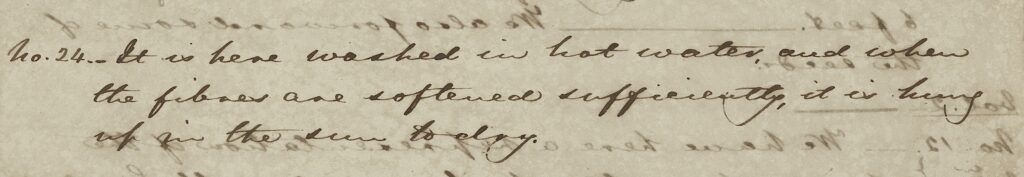 No. 24. - It is here washed in hot water, and when
the fibres are softened sufficiently, it is hung
up in the sun to dry.